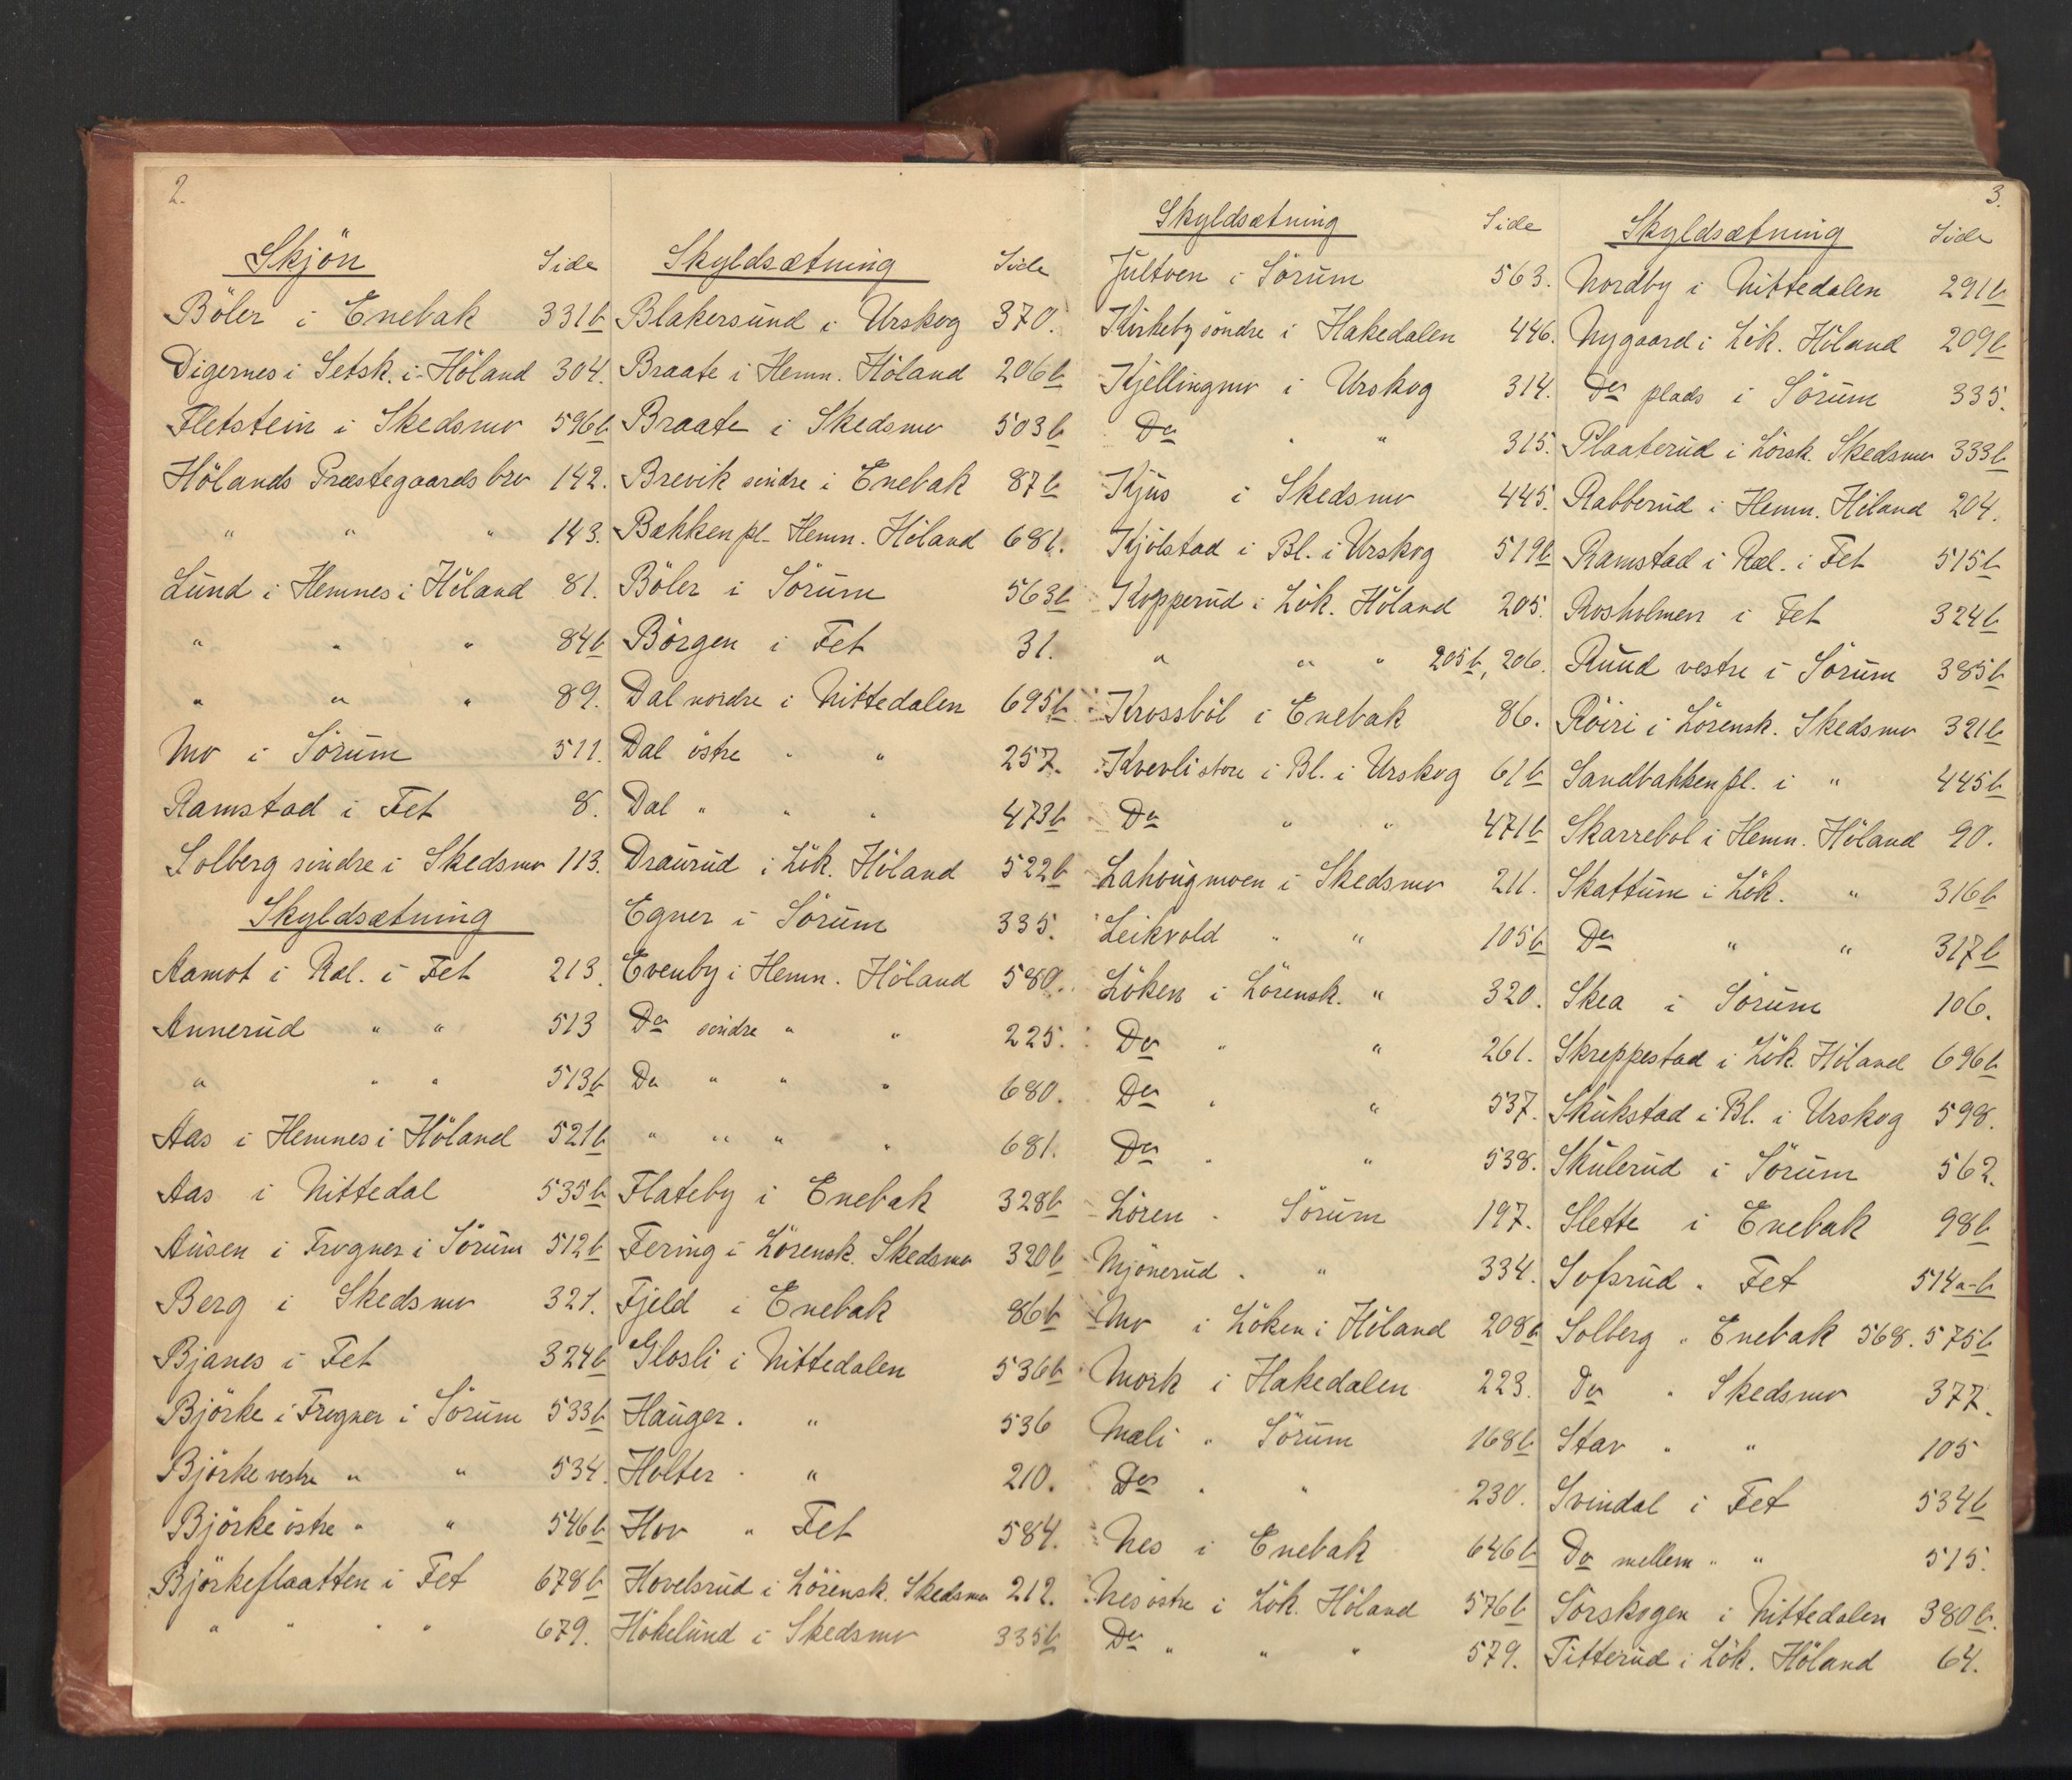 2.
Skjön Side
Böler i Enebak 331b
Digernes i Setsk. i Höland 304.
Fletstein i Skedsmo 596b
Hölands Præstegaards bro 142.
" " " 143.
Lund i Hemnes i Höland 81.
" " " 84b
" " " 89.
Mo i Sörum 511.
Ramstad i Fet 8.
Solberg söndre i Skedsmo 113.
Skyldsætning
Aamot i Ræl. i Fet 213.
Annerud " " 513
" " " 513b
Aas i Hemnes i Höland 521b
Aas i Nittedal 535b
Ausen i Frogner i Sörum 512b
Berg i Skedsmo 321.
Bjanes i Fet 324b
Björke i Frogner i Sörum 533b
Björke vestre " " 534.
Björke östre " " 546b
Björkeflaatten i Fet 678b
" " " " 679.
Skyldsætning Side
Blakersund i Urskog 370.
Braate i Hemn. Höland 206b
Braate i Skedsmo 503b
Brevik söndre i Enebak 87b
Bækken pl. Hemn. Höland 681.
Böler i Sörum 563b
Börgen i Fet 31.
Dal nordre i Nittedalen 695b
Dal östre " " 257.
Dal " " " 473b
Draurud i Lök. Höland 522b
Egner i Sörum 335.
Evenby i Hemn. Höland 580.
Do söndre " " 225.
Do " " " 680.
" " " " 681.
Flateby i Enebak 328b
Fering i Lörensk. Skedsmo 320b
Fjeld i Enebak 86b
Glosli i Nittedalen 536b
Hauger . " 536
Holter . " 210.
Hov " Fet 584.
Hovelsrud i Lörensk. Skedsmo 212.
Hökelund i Skedsmo 335b
Skyldsætning Side
Jultoen i Sörum 563.
Kirkeby söndre i Hakedalen 446.
Kjellingmo i Urskog 314.
Do " " 315.
Kjus i Skedsmo 445.
Kjölstad i Bl. i Urskog 519b
Kopperud i Lök. Höland 205.
" " " 205b, 206.
Krossböl i Enebak 86.
Kvevli store i Bl. i Urskog 61b
Do " " 471b
Lahaugmoen i Skedsmo 211.
Leikvold " " 105b
Löken i Lörensk. " 320.
Do " " 261.
Do . " 537.
Do . " 538.
Lören . Sörum 197.
Mjönerud . " 334.
Mo i Löken i Höland 208b
Mork i Hakedalen 223.
Mæli " Sörum 168b
Do . " 230.
Nes i Enebak 646b
Nes östre i Lök. Höland 576b
Do " " " 579.
3.
Skyldsætning Side
Nordby i Nittedalen 291b
Nygaard i Lök. Höland 209b
Do plads i Sörum 335.
Plaaterud i Lörsk. Skedsmo 333b
Rabberud i Hemn. Höland 204.
Ramstad i Ræl. i Fet 515b
Rosholmen i Fet 324b
Ruud vestre i Sörum 385b
Röiri i Lörensk. Skedsmo 321b
Sandbakken pl. i " 445b
Skarrebol i Hemn. Höland 90.
Skattum i Lök. " 316b
Do " " 317b
Skea i Sörum 106.
Skreppestad i Lök. Höland 696b
Skukstad i Bl. i Urskog 598.
Skulerud i Sörum 562.
Slette i Enebak 98b
Sofsrud " Fet 514a-b
Solberg " Enebak 568. 575b
Do " Skedsmo 377.
Stav " " 105
Svindal i Fet 534b
Do mellem " " 515.
Sörskogen i Nittedalen 380b.
Titterud i Lök. Höland 64.